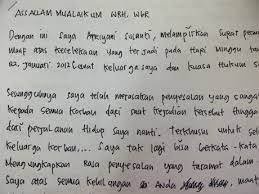 ASSALAM MUALAIKUM WRH. WBR
Dengan ini saya Afriyani Susanti, melampirkan surat permo
maaf atas kecelakaan yang terjadi pada hari minggu tan
22. januari. 2012 lewat keluarga saya dan kuasa Hukum sa
Sesungguhnya saya telah merasakan penyesalan yang sanga
kepada semua korban dari saat kejadian tersebut hingga
dari perjalanan Hidup saya nanti. Terkhusus untuk selu
keluarga korban.... saya tak lagi bisa berkata-kata
Mengungkapkan rasa penyesalan yang teramat dalam
saya atas semua kehilangan Anda